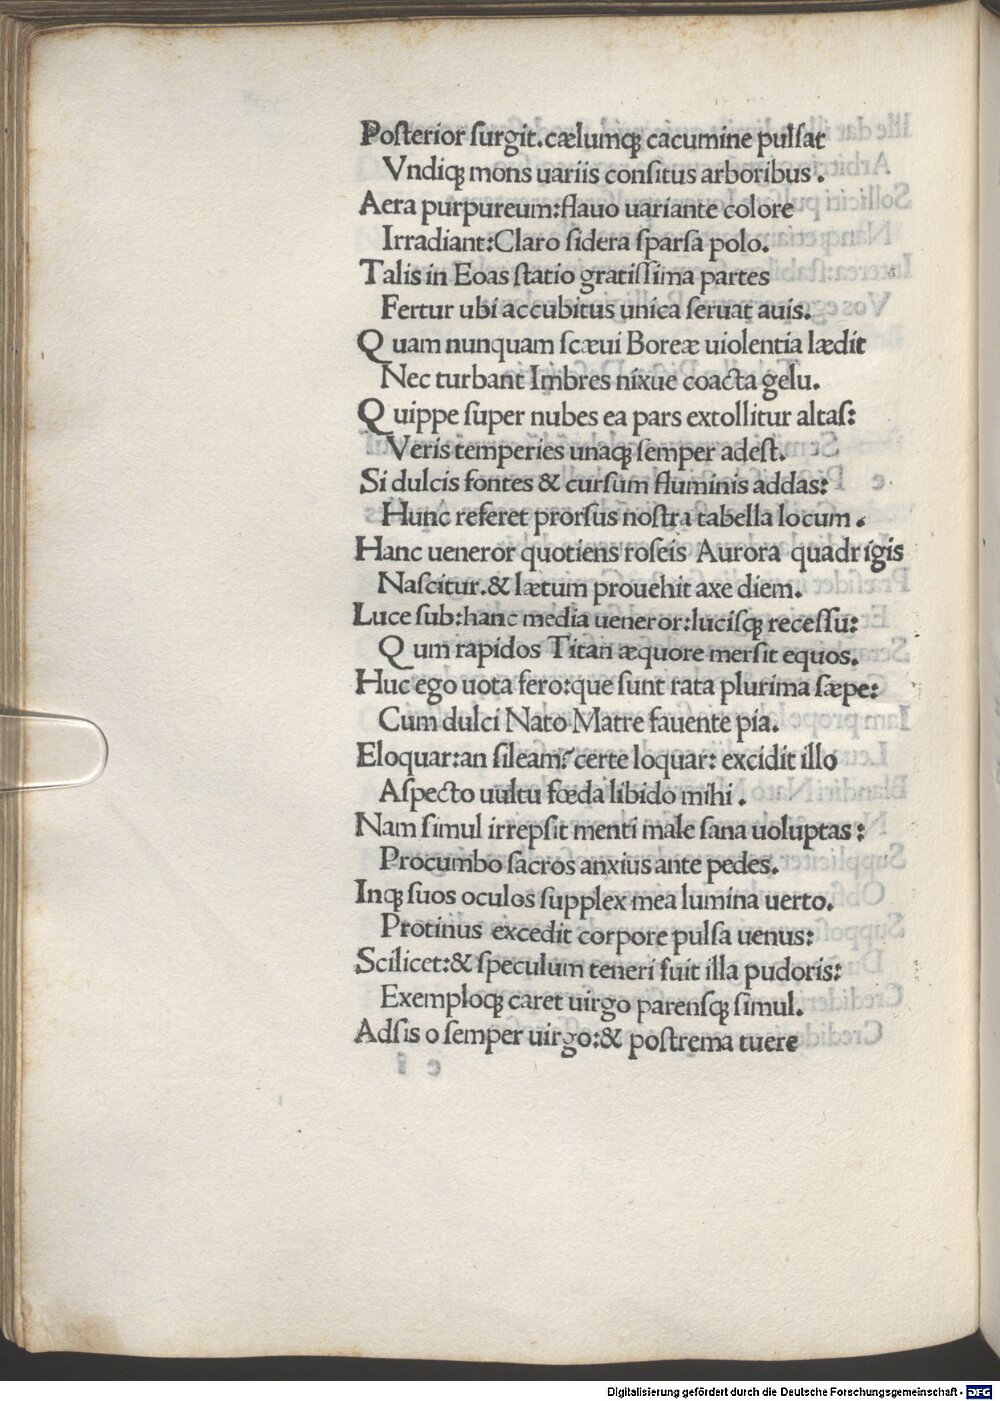 Poſterior ſurgit.cælumqꝫ cacumine pulſat
Vndiqꝫ mons uariis conſitus arboribus.
Aera purpureum:flauo uariante colore
Irradiant:Claro ſidera ſparſa polo.
Talis in Eoas ſtatio gratiſſima partes
Fertur ubi accubitus unica ſeruat auis.
Quam nunquam ſcæui Boreæ uiolentia lædit
Nec turbant Imbres nixue coacta gelu.
Quippe ſuper nubes ea pars extollitur altaſ:
Veris temperies unaqꝫ ſemper adeſt.
Si dulcis fontes & curſum fluminis addas:
Hunc referet prorſus noſtra tabella locum.
Hanc ueneror quotiens roſeis Aurora quadrigis
Naſcitur.& lætum prouehit axe diem.
Luce ſub:hanc media ueneror:luciſqꝫ receſſu:
Qum rapidos Titan æquore merſit equos.
Huc ego uota fero:que ſunt rata plurima ſæpe:
Cum dulci Nato Matre fauente pia.
Eloquar:an ſileam? certe loquar: excidit illo
Aſpecto uultu fœda libido mihi.
Nam ſimul irrepſit menti male ſana uoluptas:
Procumbo ſacros anxius ante pedes.
Inqꝫ ſuos oculos ſupplex mea lumina uerto.
Protinus excedit corpore pulſa uenus:
Scilicet:& ſpeculum teneri fuit illa pudoris:
Exemploqꝫ caret uirgo parenſqꝫ ſimul.
Adſis o ſemper uirgo:& poſtrema tuere
Digitalisierung gefördert durch die Deutsche Forschungsgemeinschaft - DFG